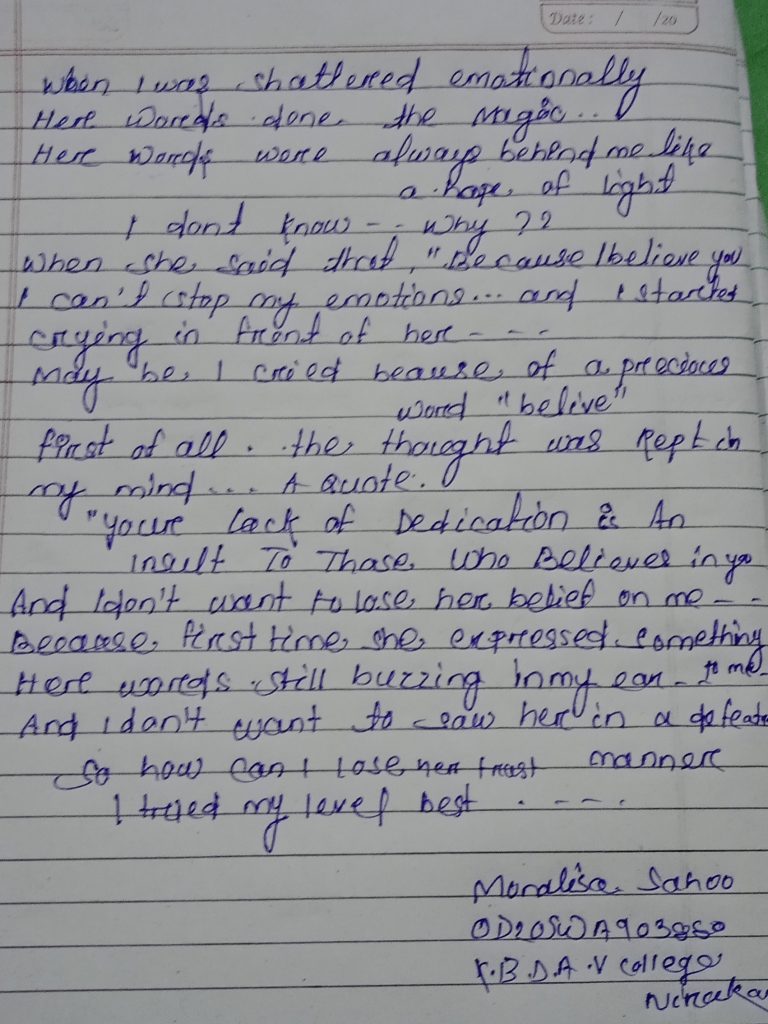 Date: / /20
When I was shattered emotionally
Here Words done the Magic...
Here Words were always behend me like
a hope of light
I dont know -- Why ??
When she said that, "Because I believe you
I can't stop my emotions... and I started
crying in front of her ----
May be I cried beause of a precious
word "belive"
first of all . the thought was kept in
my mind ... A Quote.
"Your Lack of Dedication is An
Insult To Those Who Believes in you
And I don't want to lose her belief on me --
Because first time she expressed something
to me-
Here words still buzzing in my ear -
And I don't want to saw her in a defeate
manner
So how can I lose her trust
I tried my level best . ---.
Monalisa Sahoo
OD20SWA903850
K.B.D.A.V College